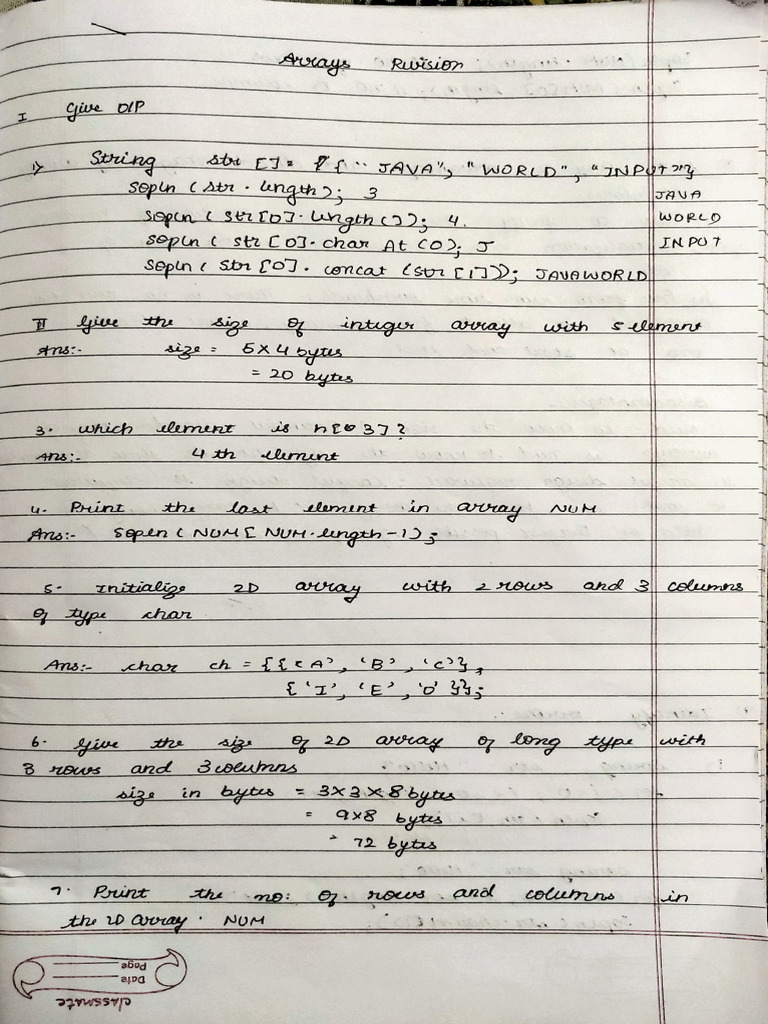 Arrays Revision
I Give O/P
1) String str []= { " JAVA", "WORLD", "INPUT"};
sopln (str . length); 3 JAVA
sopln ( str[0]. length()); 4. WORLD
sopln ( str [0]. char At (0); J INPUT
sopln ( str [0]. concat (str [1])); JAVAWORLD
II Give the size of integer array with 5 element
Ans:- size = 5 X 4 bytes
= 20 bytes
3. which element is n[3]?
Ans:- 4 th element
4. Print the last element in array NUM
Ans:- sopln ( NUM[ NUM.length-1);
5. Initialize 2D array with 2 rows and 3 columns
of type char
Ans:- char ch = {{'A', 'B', 'C'},
{ 'I', 'E', 'O' }};
6. Give the size of 2D array of long type with
3 rows and 3 columns
size in bytes = 3X3 X 8 bytes
= 9x8 bytes
= 72 bytes
7. Print the no: of rows and columns in
the 2D array. NUM
classmate
Date
Page